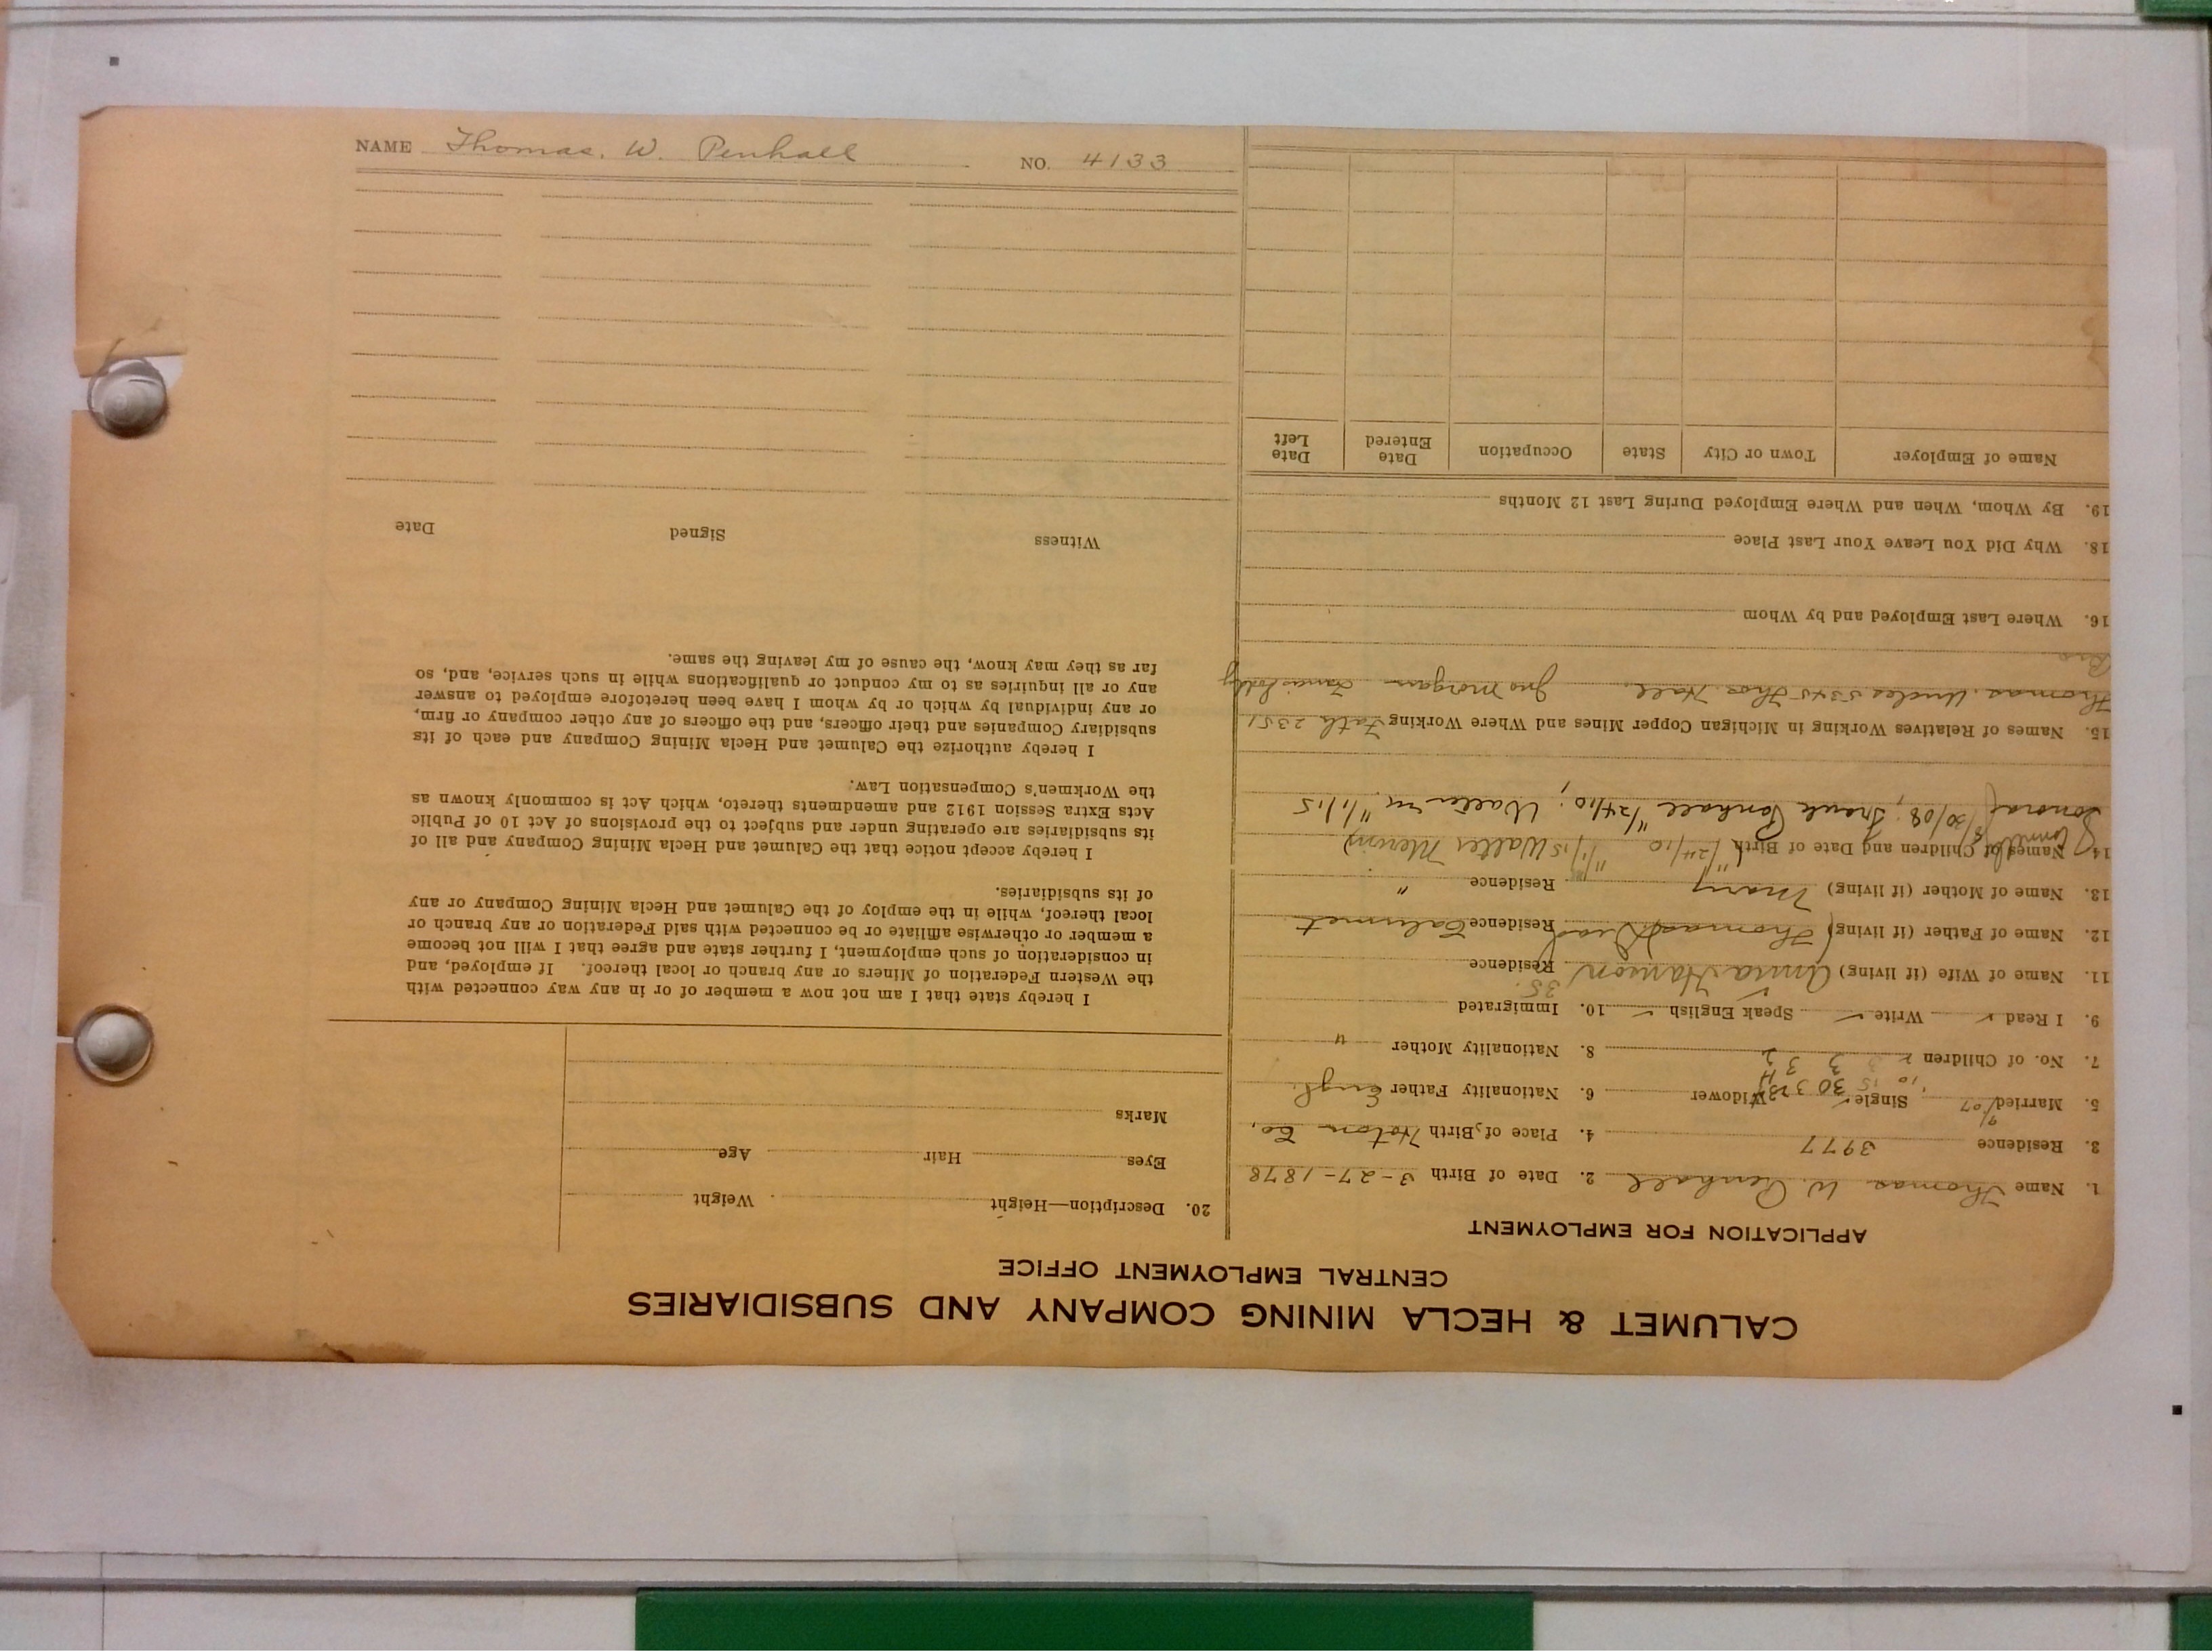 NAME Thomas. W. Penhall NO. 4133
CALUMET & HECLA MINING COMPANY AND SUBSIDIARIES
CENTRAL EMPLOYMENT OFFICE
APPLICATION FOR EMPLOYMENT
1. Name Thomas W. Penhall 2. Date of Birth 3-27-1878
3. Residence 3977 4. Place of Birth Hoton Co,
5. Married 9/07 Single Widower 6. Nationality Father Engl.
7. No. of Children 8. Nationality Mother "
9. I Read ✓ Write ✓ Speak English ✓ 10. Immigrated
11. Name of Wife (if living) Anna Hanson Residence
12. Name of Father (if living) Thomas (Dead) Residence Calumet
13. Name of Mother (if living) Mary Residence "
14. Names of Children and Date of Birth 11/24/10 11/1/15 Walter Mervin
8/30/08; Frank Penhall 11/24/10; Walter M. 11/1/15
15. Names of Relatives Working in Michigan Copper Mines and Where Working Fath 2351
Thomas. Uncles 5345 Thos. Hall. Jno Morgan
Bro
16. Where Last Employed and by Whom
18. Why Did You Leave Your Last Place
19. By Whom, When and Where Employed During Last 12 Months
Name of Employer Town or City State Occupation Date Entered Date Left
20. Description—Height Weight
Eyes Hair Age
Marks
I hereby state that I am not now a member of or in any way connected with
the Western Federation of Miners or any branch or local thereof. If employed, and
in consideration of such employment, I further state and agree that I will not become
a member or otherwise affiliate or be connected with said Federation or any branch or
local thereof, while in the employ of the Calumet and Hecla Mining Company or any
of its subsidiaries.
I hereby accept notice that the Calumet and Hecla Mining Company and all of
its subsidiaries are operating under and subject to the provisions of Act 10 of Public
Acts Extra Session 1912 and amendments thereto, which Act is commonly known as
the Workmen's Compensation Law.
I hereby authorize the Calumet and Hecla Mining Company and each of its
subsidiary Companies and their officers, and the officers of any other company or firm,
or any individual by which or by whom I have been heretofore employed to answer
any or all inquiries as to my conduct or qualifications while in such service, and, so
far as they may know, the cause of my leaving the same.
Witness Signed Date